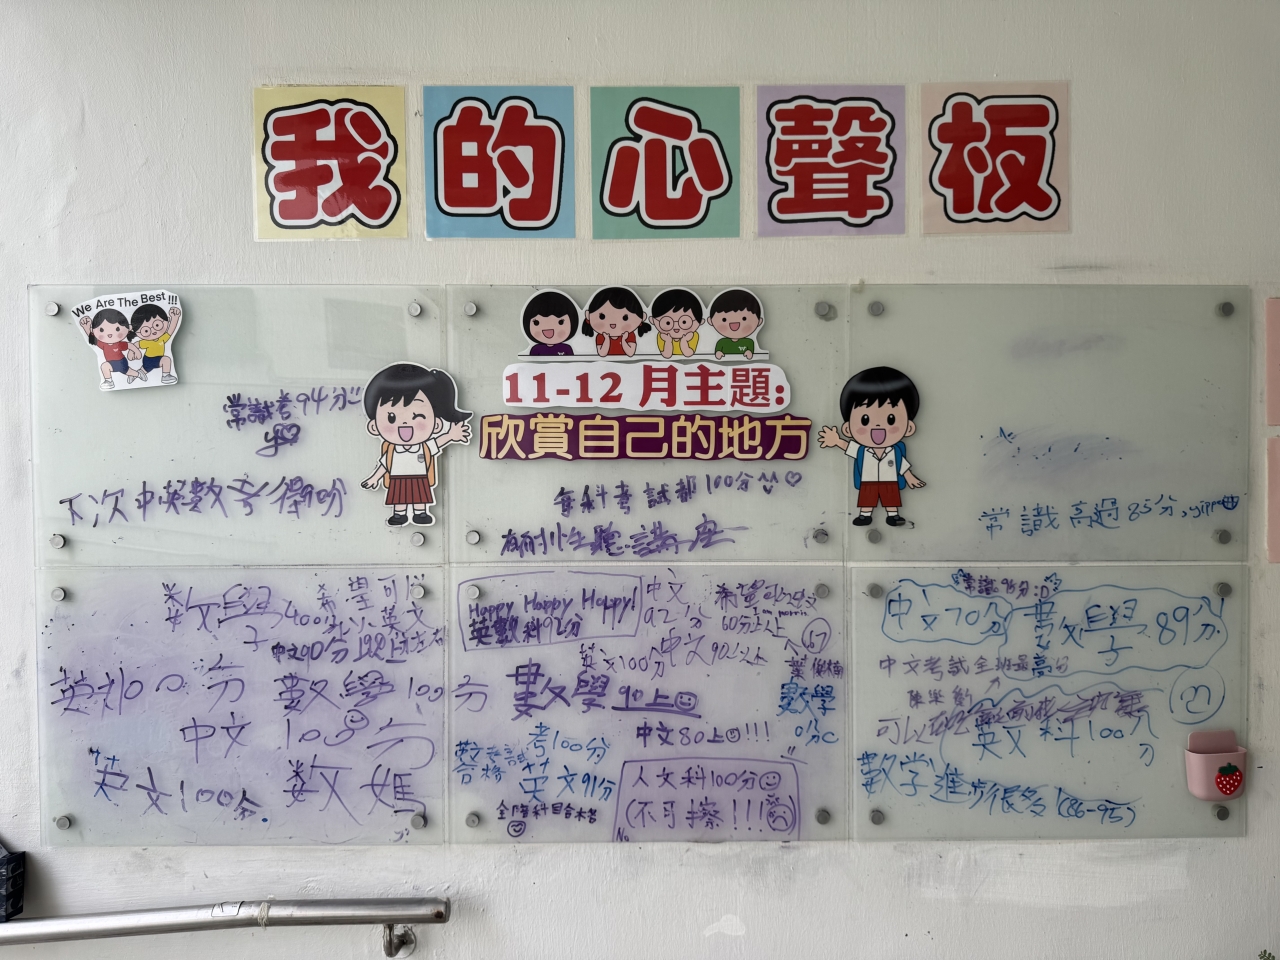 我的心聲板
We Are The Best !!!
11-12 月主題:
欣賞自己的地方
常識考94分
下次中英數考得
每科考試都100分
聽講座
常識高過85分,yippe
數學
400分
希望可以
英文
中文90分以上
英
100分
數學100分
中文100分
英文100分.
數媽
Happy Happy Happy!
英數科92分
中文
92分
希望
60分以上
67
英文100分
中文90以上
數學90上
數學
0分
考100分
中文80上!!!
數考試
合格
英文91分
全部科目合格
人文科100分
(不可擦!!!)
No
常識95分:D
中文70分
數學89分
中文考試全班最高分
陳樂
可以
英文科100分
21
數学進步很多(86-95)